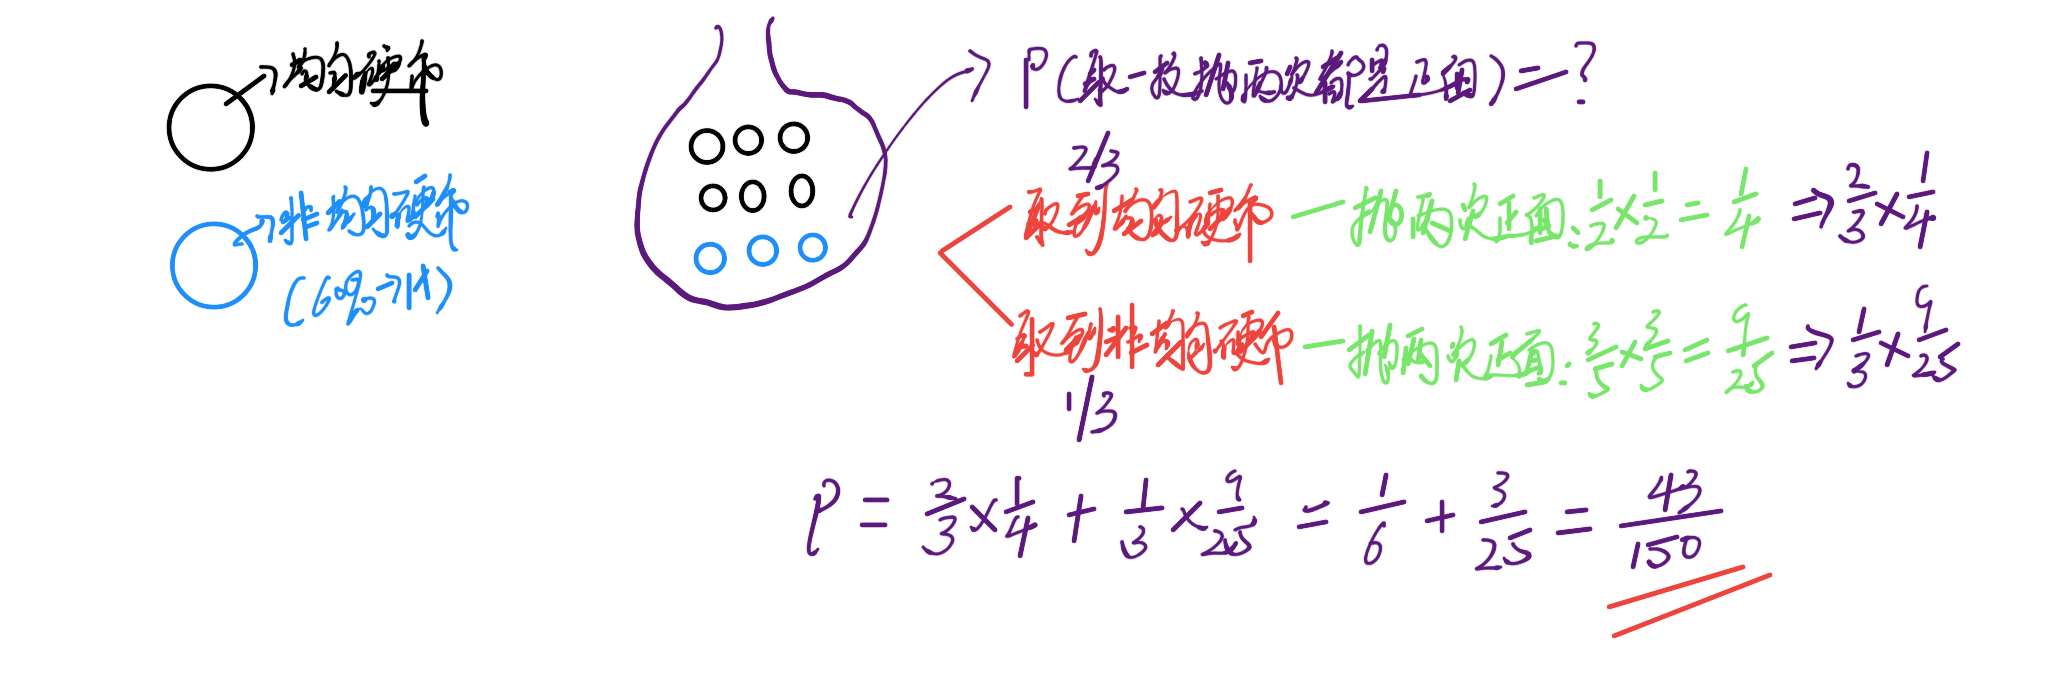 均匀硬币
非均匀硬币
(60%→H)
P(取一枚抛两次都是正面)=?
2/3
取到均匀硬币 — 抛两次正面: 1/2 × 1/2 = 1/4 ⇒ 2/3 × 1/4
取到非均匀硬币 — 抛两次正面: 3/5 × 3/5 = 9/25 ⇒ 1/3 × 9/25
1/3
P = 2/3 × 1/4 + 1/3 × 9/25 = 1/6 + 3/25 = 43/150